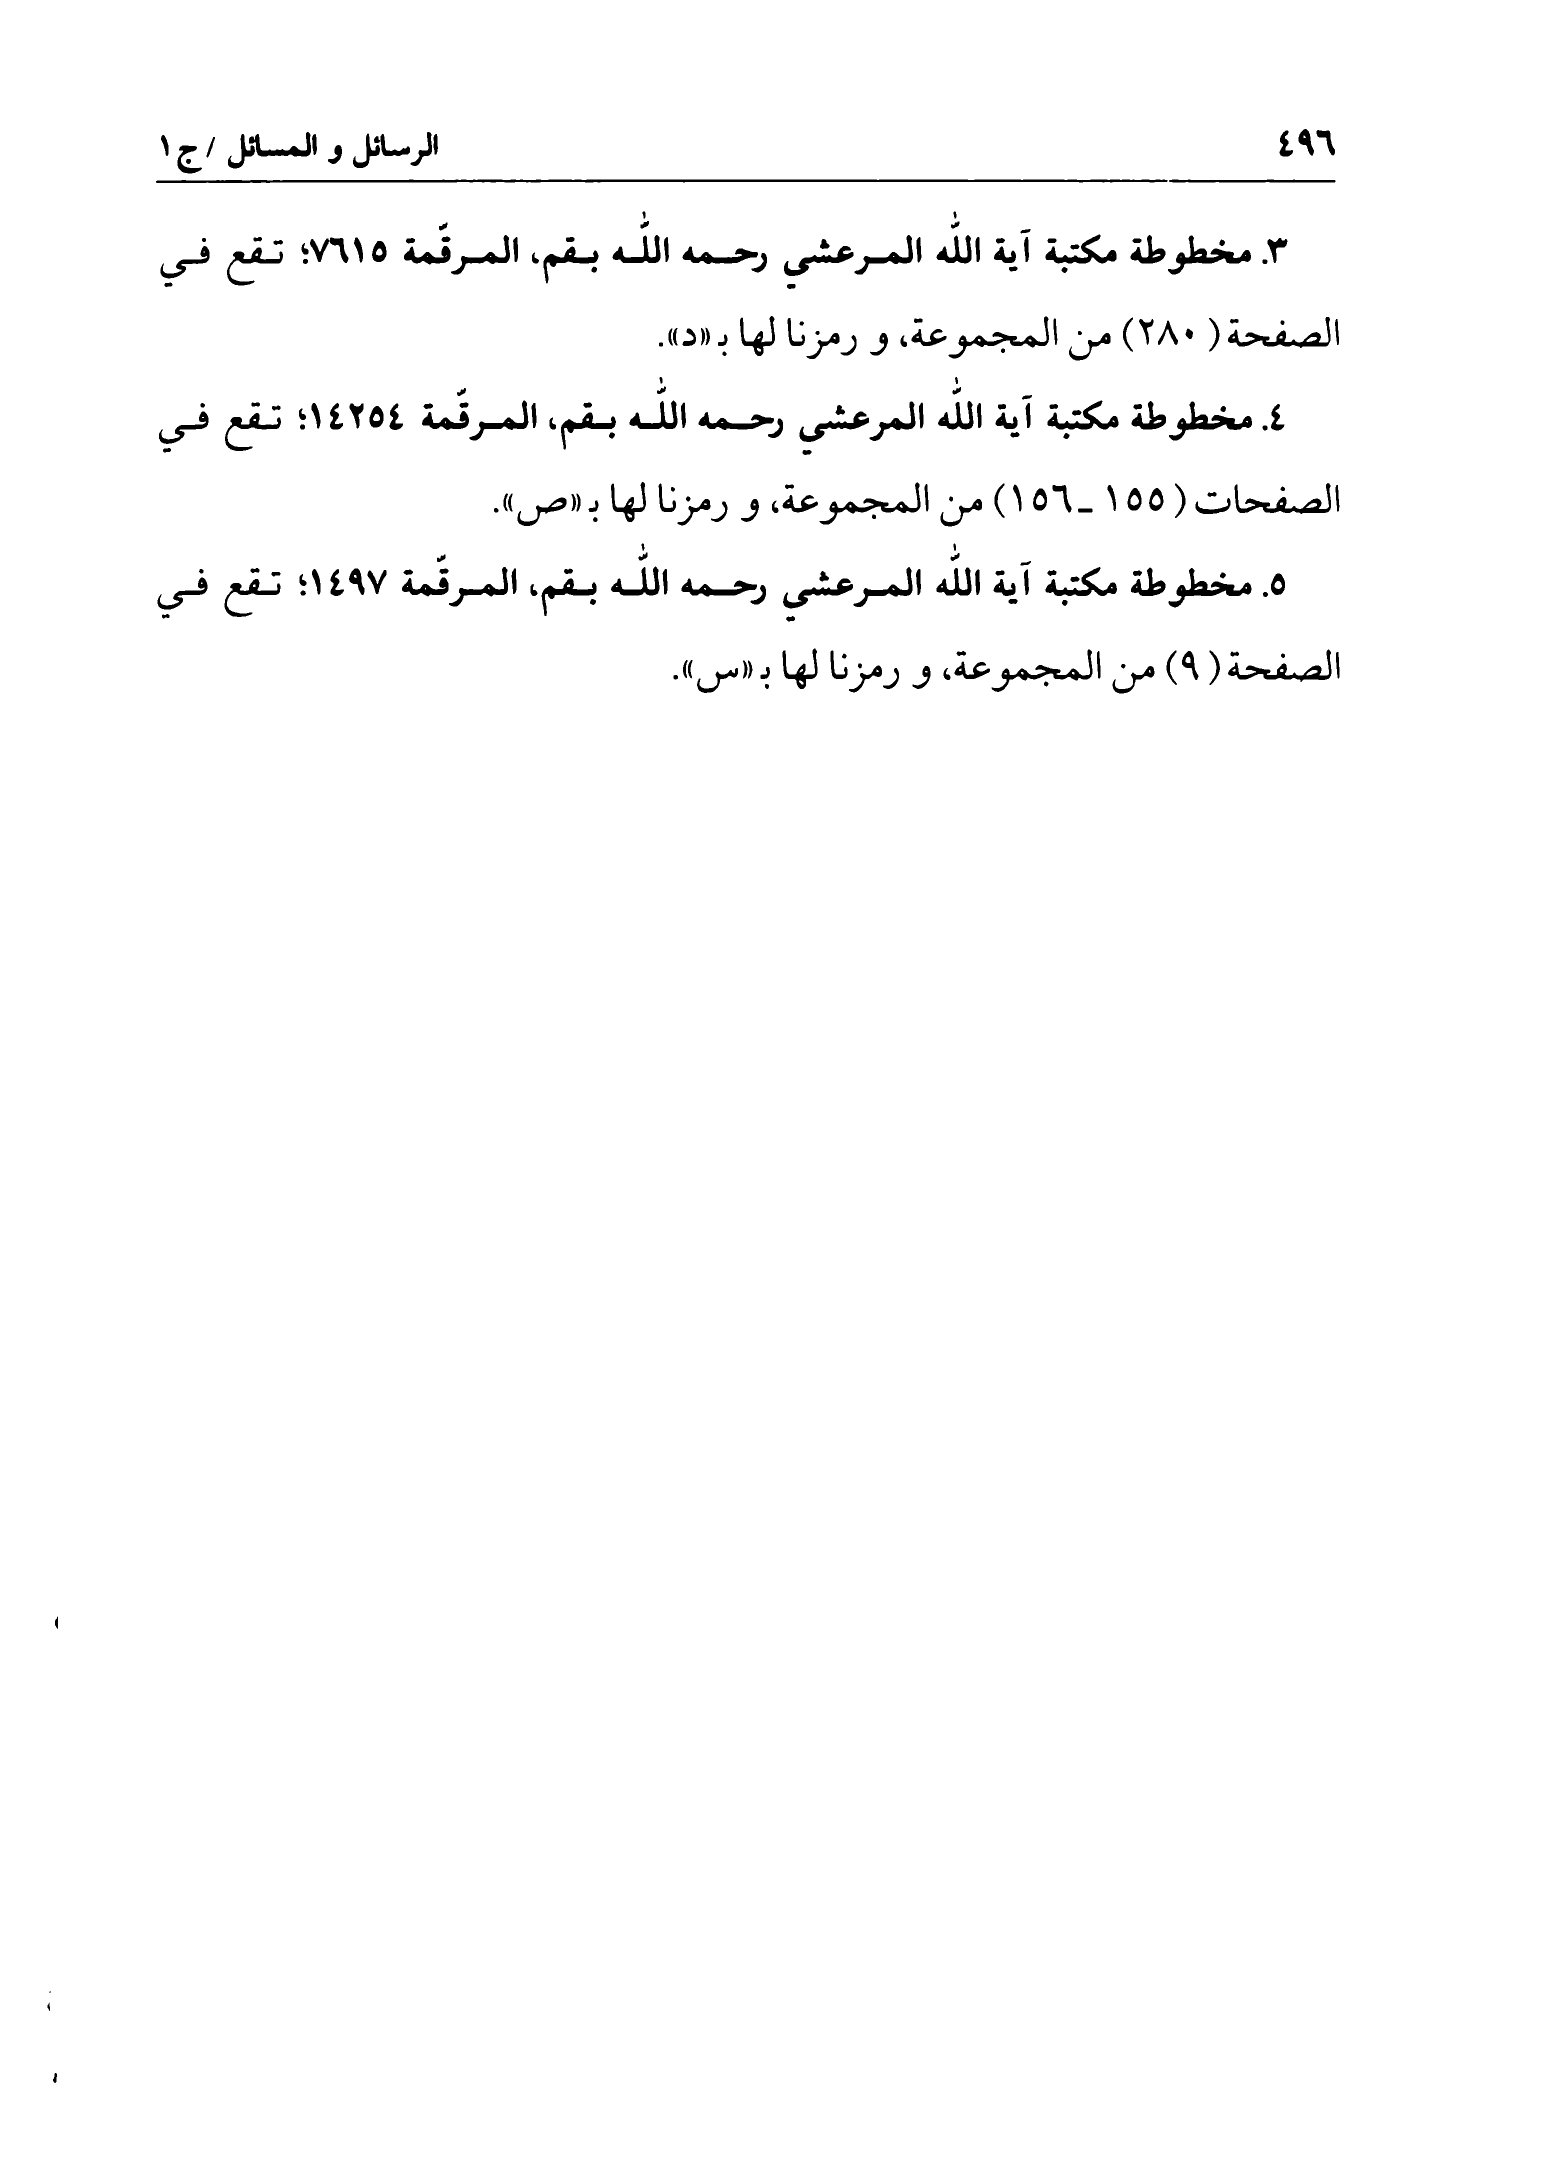 ٤٩٦ الرسائل و المسائل / ج ١
٣. مخطوطة مكتبة آية اللّٰه المرعشي رحمه اللّٰه بقم، المرقّمة ٧٦١٥؛ تقع في
الصفحة (٢٨٠) من المجموعة، و رمزنا لها بـ«د».
٤. مخطوطة مكتبة آية اللّٰه المرعشي رحمه اللّٰه بقم، المرقّمة ١٤٢٥٤؛ تقع في
الصفحات (١٥٥ ـ ١٥٦) من المجموعة، و رمزنا لها بـ«ص».
٥. مخطوطة مكتبة آية اللّٰه المرعشي رحمه اللّٰه بقم، المرقّمة ١٤٩٧؛ تقع في
الصفحة (٩) من المجموعة، و رمزنا لها بـ«س».